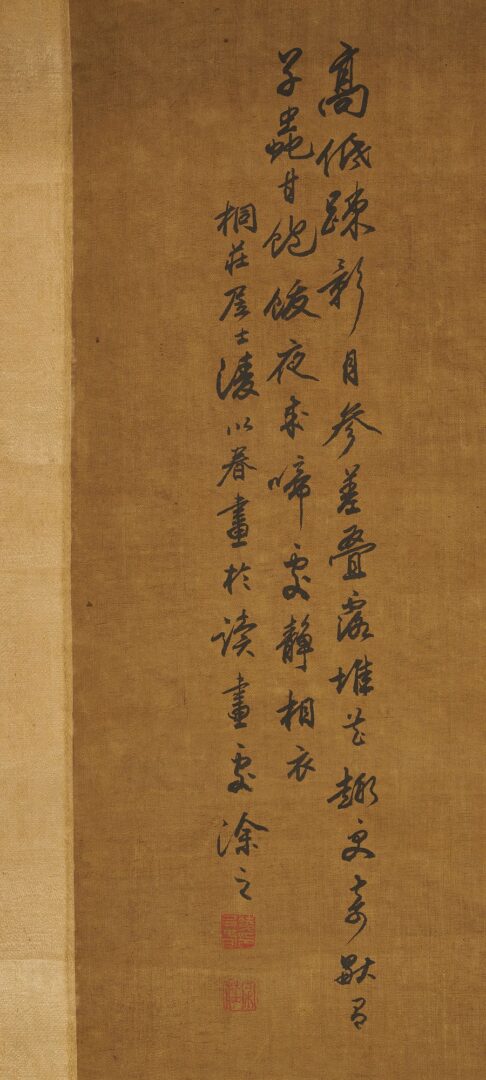 高低踈影月參差疊露堆花趣更奇
草蟲甘飽飯夜來啼處靜相衣
桐莊居士凌以春畫於讀畫處涂之